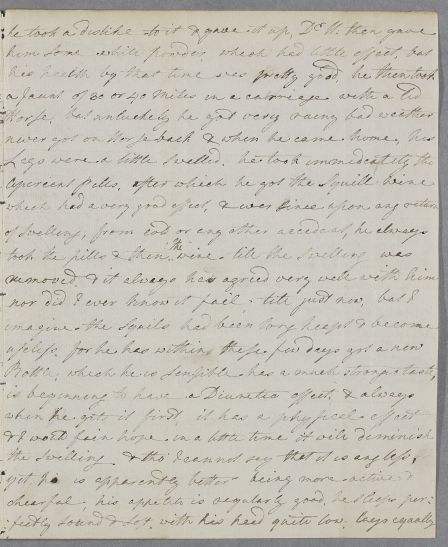 he took a dislike to it & gave it up, Dr. H. then gave
him some white powder, which had little effect, but
his health by that time was pretty good, he then took
a Jaunt of 30 or 40 Miles in a carriage with a led
Horse, but unluckily he got very rainy bad weather
never got on Horseback & when he came home, his
Legs were a little swelled. he took immediately the
Aperient Pills, after which he got the Squill wine
which had a very good effect, & ever since upon any return
of Swelling, from cold or any other accident, he always
took the pills & then the wine till the swelling was
removed & it always has agreed very well with him
nor did I ever know it fail till just now, but I
imagine the squils had been long keept & become
useless, for he has within these few days got a new
Bottle, which he is sensible has a much stronger taste,
is beginning to have a Diuretic effect, & always
when he gets it first it has a physical effect
& I would fain hope in a little time it will diminish
the swelling & tho' I cannot say that it is any less,
yet he is apparently better being more active &
chearful. his appetite is regularly good, he sleeps per=
=fectly sound & soft, with his head quite low, lays equally